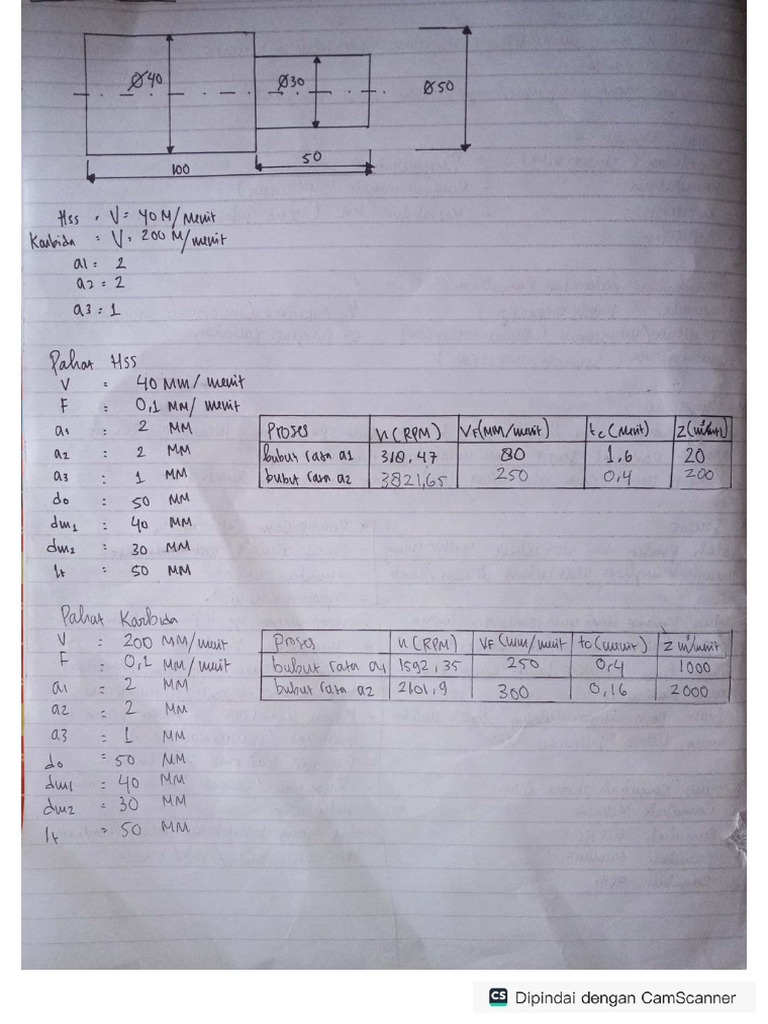 Ø40
Ø30
Ø50
50
100
Hss . V = 40 M/Menit
Karbida = V = 200 M/menit
a1 = 2
a2 = 2
a3 = 1
Pahat Hss
V : 40 MM/menit
F : 0,1 MM/menit
a1 : 2 MM
a2 : 2 MM
a3 : 1 MM
do : 50 MM
dm1 : 40 MM
dm2 : 30 MM
lt : 50 MM
Proses n (RPM) VF(MM/menit) tc (Menit)
bubut rata a1 318,47 80 1,6 20
bubut rata a2 3821,65 250 0,4 200
Pahat Karbida
V : 200 MM/menit
F : 0,1 MM/menit
a1 : 2 MM
a2 : 2 MM
a3 : 1 MM
do = 50 MM
dm1 = 40 MM
dm2 = 30 MM
lt = 50 MM
Proses n (RPM) VF (mm/menit tc (menit) Z m³/menit
bubut rata a1 1592,35 250 0,4 1000
bubut rata a2 2101,9 300 0,16 2000
CS Dipindai dengan CamScanner